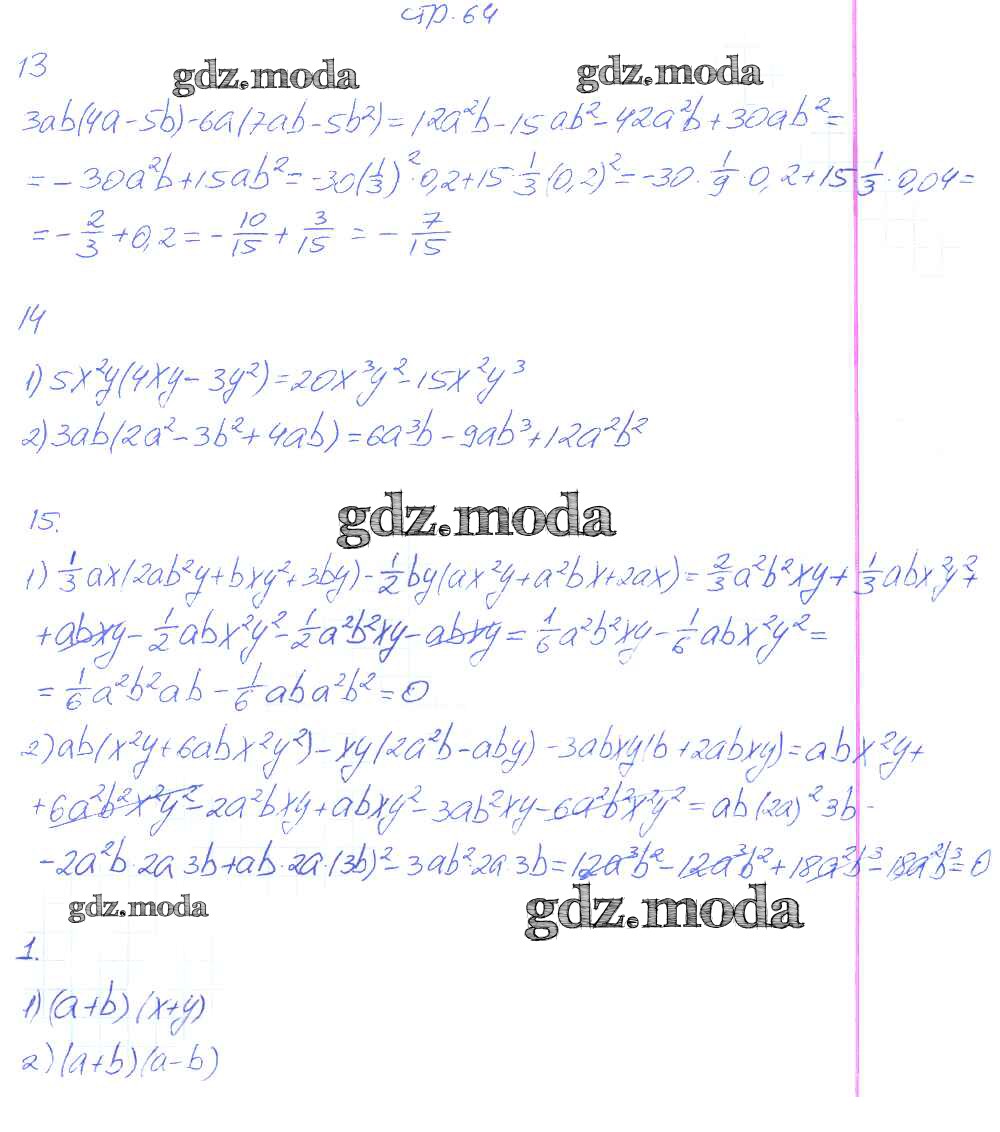 стр. 64
13
gdz.moda gdz.moda
3ab(4a-5b)-6a(7ab-5b²)=12a²b-15ab²-42a²b+30ab²=
=-30a²b+15ab²=-30(1/3)²·0,2+15·1/3(0,2)²=-30·1/9·0,2+15 1/3·0,04=
=-2/3+0,2=-10/15+3/15=-7/15
14
1) 5x²y(4xy-3y²)=20x³y²-15x²y³
2) 3ab(2a²-3b²+4ab)=6a³b-9ab³+12a²b²
gdz.moda
15.
1) 1/3ax(2ab²y+bxy²+3by)-1/2by(ax²y+a²bx+2ax)=2/3a²b²xy+1/3abx²y²+
+abxy-1/2abx²y²-1/2a²b²xy-abxy=1/6a²b²xy-1/6abx²y²=
=1/6a²b²ab-1/6aba²b²=0
2) ab(x²y+6abx²y²)-xy(2a²b-aby)-3abxy(b+2abxy)=abx²y+
+6a²b²x²y²-2a²bxy+abxy²-3ab²xy-6a²b²x²y²=ab(2a)²3b-
-2a²b·2a 3b+ab·2a·(3b)²-3ab²·2a·3b=12a³b²-12a³b²+18a²b³-18a²b³=0
gdz.moda gdz.moda
1.
1) (a+b)(x+y)
2) (a+b)(a-b)